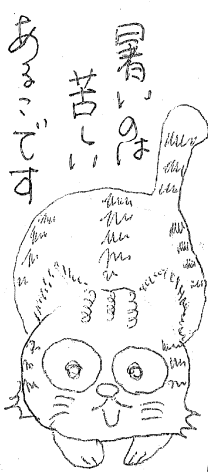 暑いのは
苦しい
あるこです